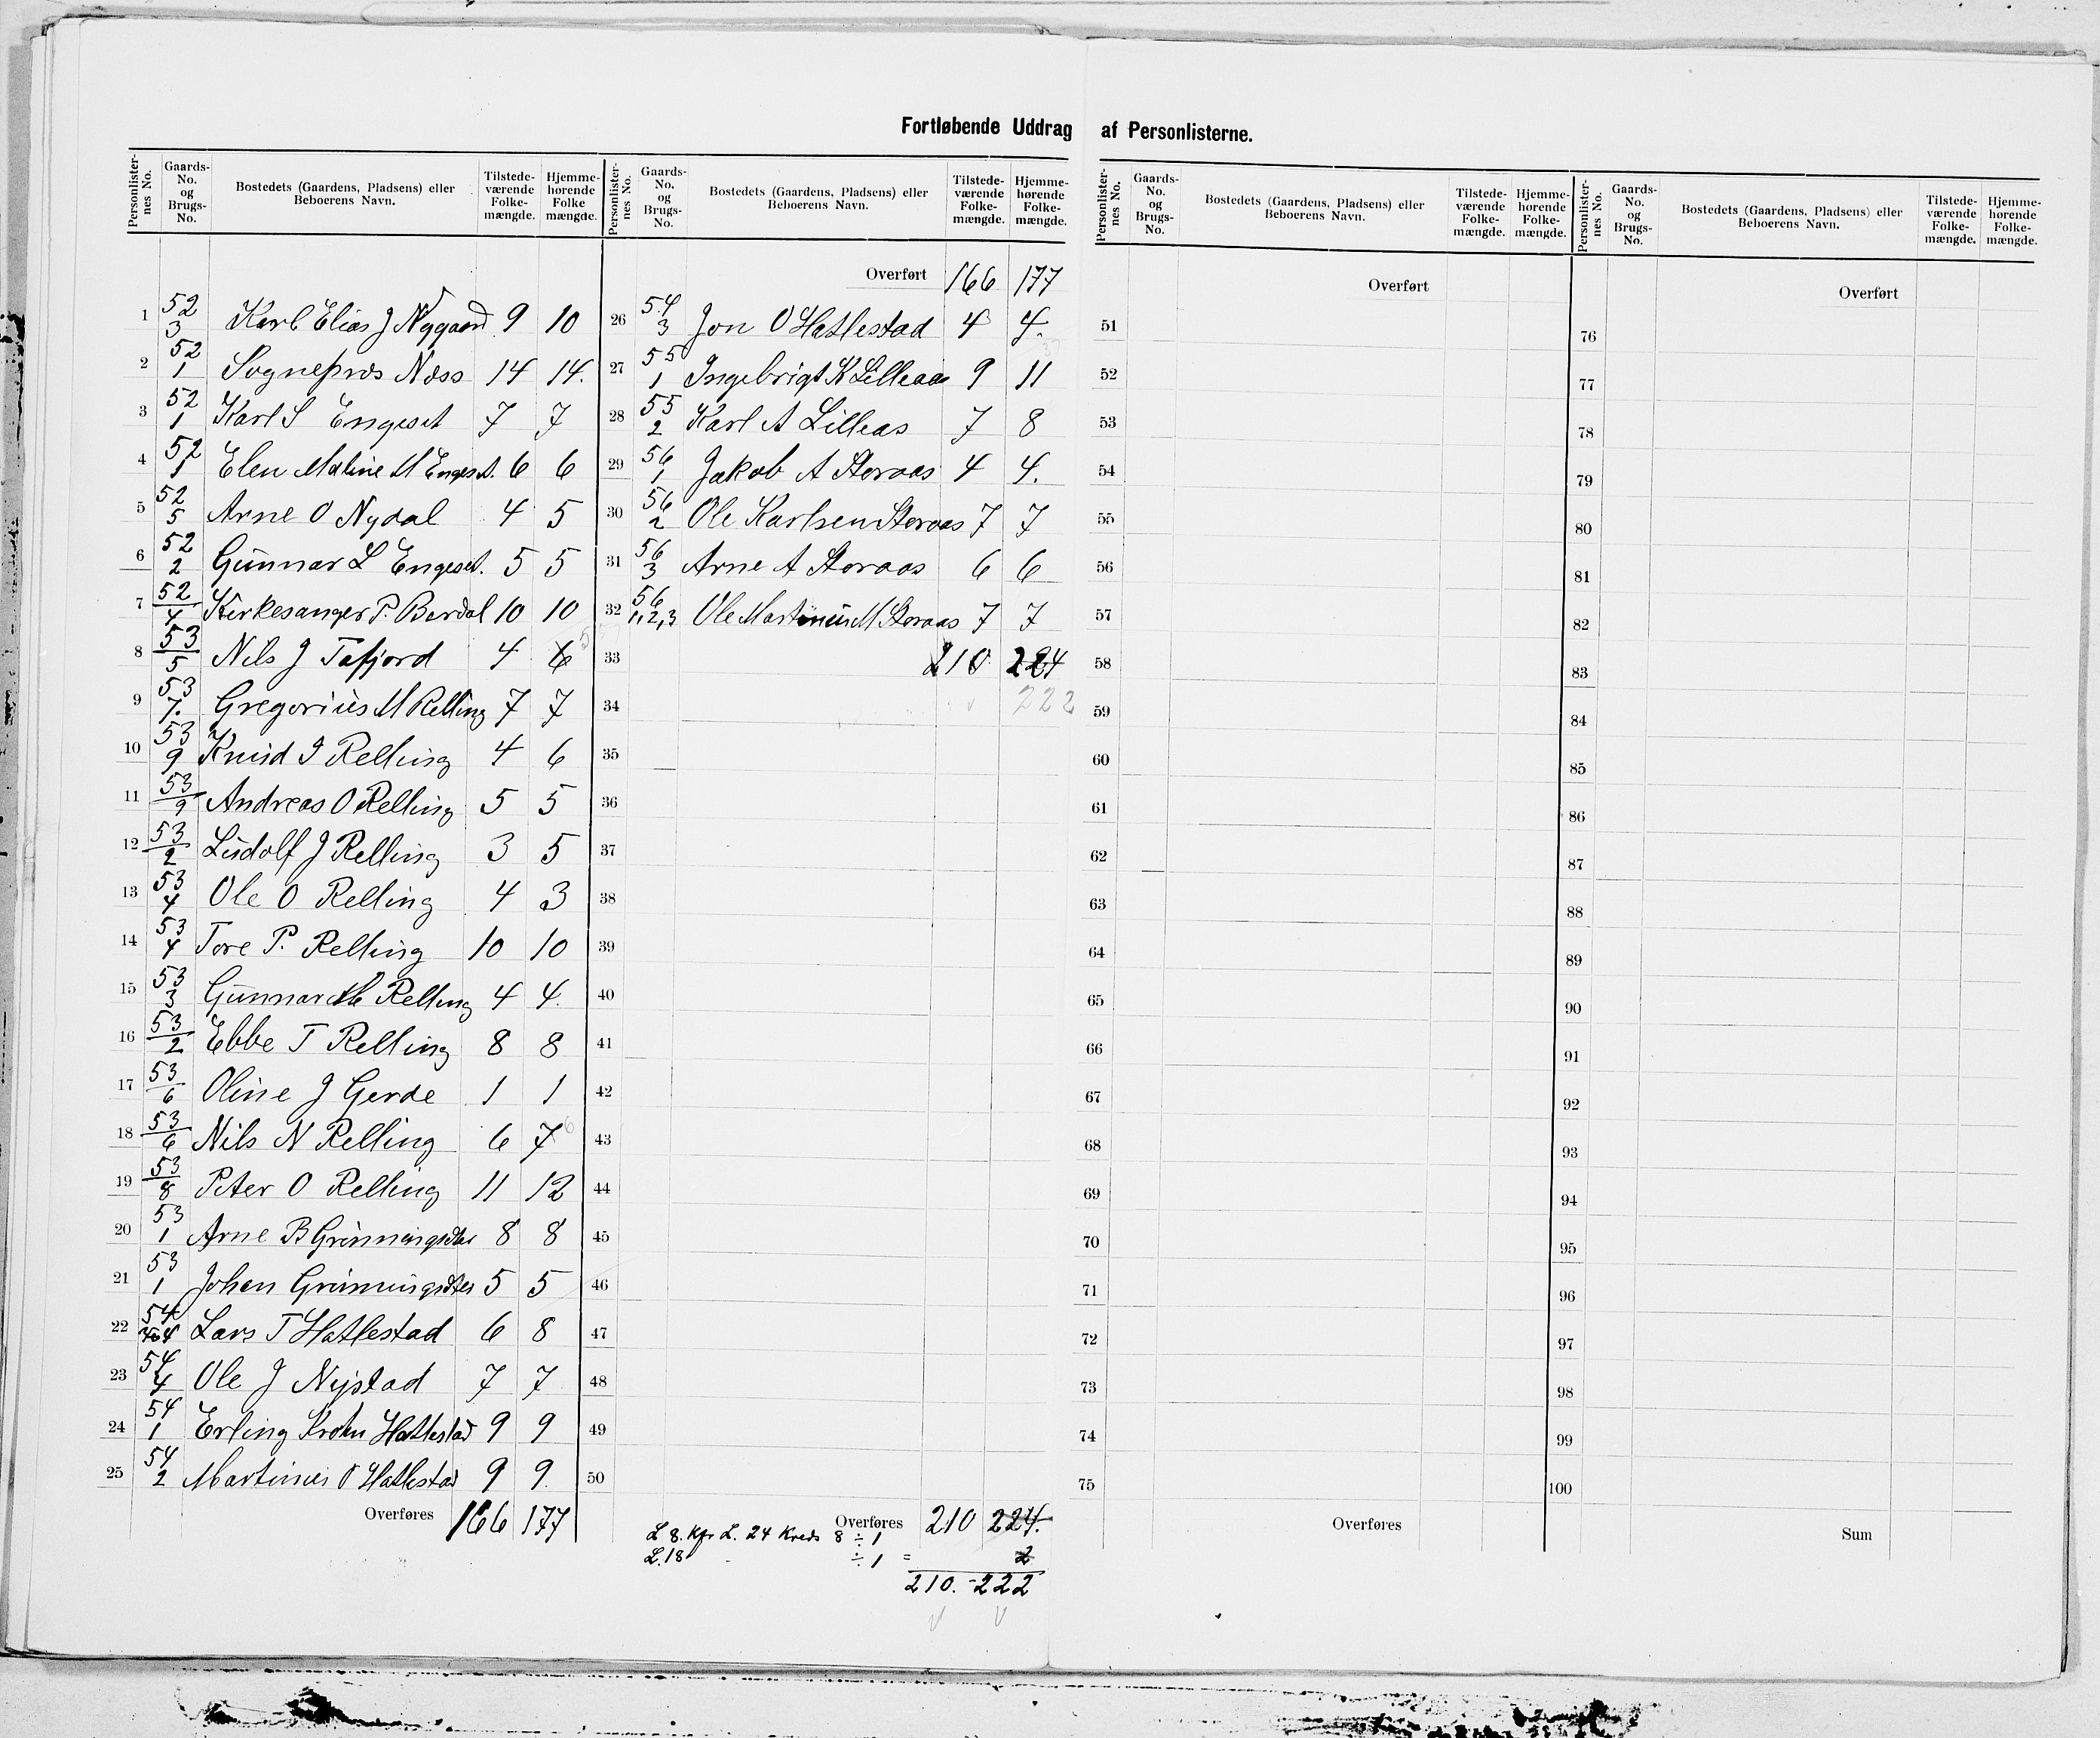 Fortløbende Uddrag af Personlisterne.
Personlisternes No. Gaards-No. og Brugs-No. Bostedets (Gaardens, Pladsens) eller Beboerens Navn. Tilstedeværende Folkemængde. Hjemmehørende Folkemængde.
1 52/3 Karl Elias J Nygaard 9 10
2 52/1 Sognepres Næss 14 14.
3 52/1 Karl S Engeset 7 7
4 52/1 Elen Maline M Engeset. 6 6
5 52/5 Arne O Nydal 4 5
6 52/2 Gunnar L Engeset. 5 5
7 52/4 Kirkesanger P. Berdal 10 10
8 53/5 Nils J Tafjord 4 6 5
9 53/7. Gregorius M Relling 7 7
10 53/9 Knud I Relling 4 6
11 53/9 Andreas O Relling 5 5
12 53/2 Ludolf J Relling 3 5
13 53/4 Ole O Relling 4 3
14 53/4 Tore P. Relling 10 10
15 53/3 Gunnar M Relling 4 4.
16 53/2 Ebbe T Relling 8 8
17 53/6 Oline J Gerde 1 1
18 53/6 Nils N Relling 6 7 6
19 53/8 Peter O Relling 11 12
20 53/1 Arne B Grønningsæter 8 8
21 53/1 Johan Grønningsæter 5 5
22 54/4 Lars T Hatlestad 6 8
23 54/4 Ole J Nystad 7 7
24 54/1 Erling Krohn Hatlestad 9 9
25 54/2 Martinus O Hatlestad 9 9.
Overføres 166 177
Personlisternes No. Gaards-No. og Brugs-No. Bostedets (Gaardens, Pladsens) eller Beboerens Navn. Tilstedeværende Folkemængde. Hjemmehørende Folkemængde.
Overført 166 177
26 54/3 Jon O Hatlestad 4 4.
27 55/1 Ingebrigt K Lilleaas 9 11
28 55/2 Karl A Lilleas 7 8
29 56/1 Jakob A Storaas 4 4.
30 56/2 Ole Karlsen Storaas 7 7
31 56/3 Arne A Storaas 6 6
32 56/1,2,3 Ole Martinus M Storaas 7 7
33 210 224
34 222
35
36
37
38
39
40
41
42
43
44
45
46
47
48
49
50
Overføres 210 224.
L 8. Kfr L. 24 Kreds 8 ÷ 1
L. 18 - ÷ 1 = 2
210. - 222
Personlisternes No. Gaards-No. og Brugs-No. Bostedets (Gaardens, Pladsens) eller Beboerens Navn. Tilstedeværende Folkemængde. Hjemmehørende Folkemængde.
Overført
51
52
53
54
55
56
57
58
59
60
61
62
63
64
65
66
67
68
69
70
71
72
73
74
75
Overføres
Personlisternes No. Gaards-No. og Brugs-No. Bostedets (Gaardens, Pladsens) eller Beboerens Navn. Tilstedeværende Folkemængde. Hjemmehørende Folkemængde.
Overført
76
77
78
79
80
81
82
83
84
85
86
87
88
89
90
91
92
93
94
95
96
97
98
99
100
Sum